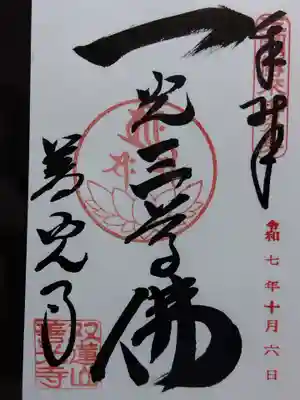 奉拝
令和七年十月六日
一光三尊佛
善光寺
双蓮山
善光寺